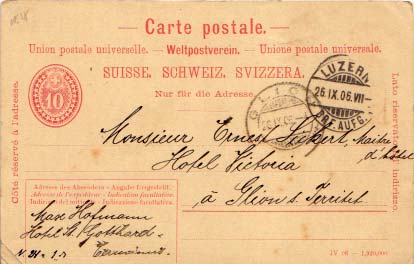 Carte postale.
Union postale universelle. — Weltpostverein. — Unione postale universale.
SUISSE. SCHWEIZ. SVIZZERA.
Nur für die Adresse.
Côté réservé à l'adresse.
Lato riservato all'indirizzo.
10
LUZERN
26.IX.06.VII-
BRF.AUFG.
GLION
26.IX.06
Monsieur Ernest Sickert, Maître
d'hôtel
Hotel Victoria
à Glion s. Territet
Adresse des Absenders - Angabe freigestellt.
Adresse de l'expéditeur - Indication facultative.
Indirizzo del mittente - Indicazione facoltativa.
Max Hofmann
Hotel St. Gotthard
IV 06 — 1,920,000